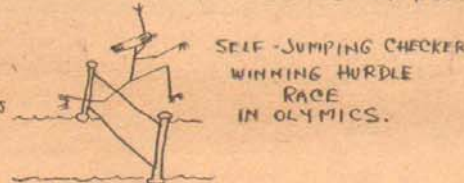 SELF-JUMPING CHECKER
WINNING HURDLE
RACE
IN OLYMICS.